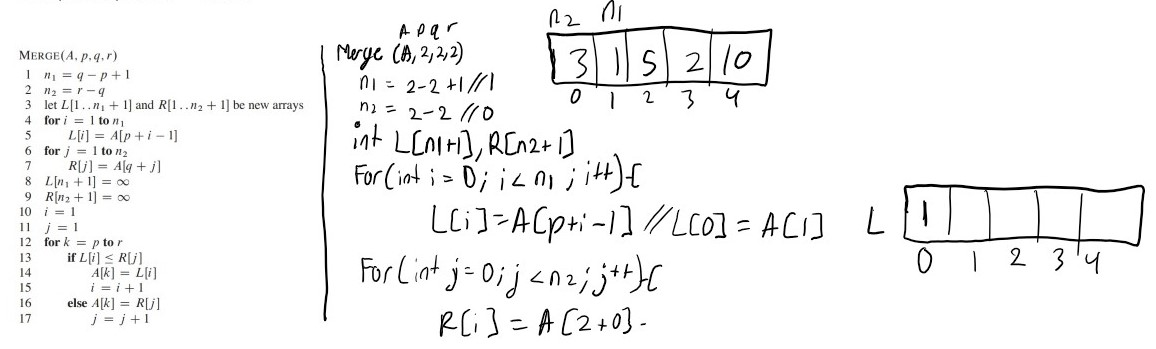 MERGE(A, p, q, r)
1 n₁ = q − p + 1
2 n₂ = r − q
3 let L[1..n₁ + 1] and R[1..n₂ + 1] be new arrays
4 for i = 1 to n₁
5 L[i] = A[p + i − 1]
6 for j = 1 to n₂
7 R[j] = A[q + j]
8 L[n₁ + 1] = ∞
9 R[n₂ + 1] = ∞
10 i = 1
11 j = 1
12 for k = p to r
13 if L[i] ≤ R[j]
14 A[k] = L[i]
15 i = i + 1
16 else A[k] = R[j]
17 j = j + 1
A p q r
Merge (A, 2,2,2)
n1 = 2-2+1 //1
n2 = 2-2 //0
int L[n1+1], R[n2+1]
For(int i = 0; i < n1; i++){
L[i]=A[p+i-1] //L[0] = A[1]
For(int j=0; j<n2; j++){
R[i] = A[2+0]
n2 n1
3 1 5 2 10
0 1 2 3 4
L 1
0 1 2 3 4